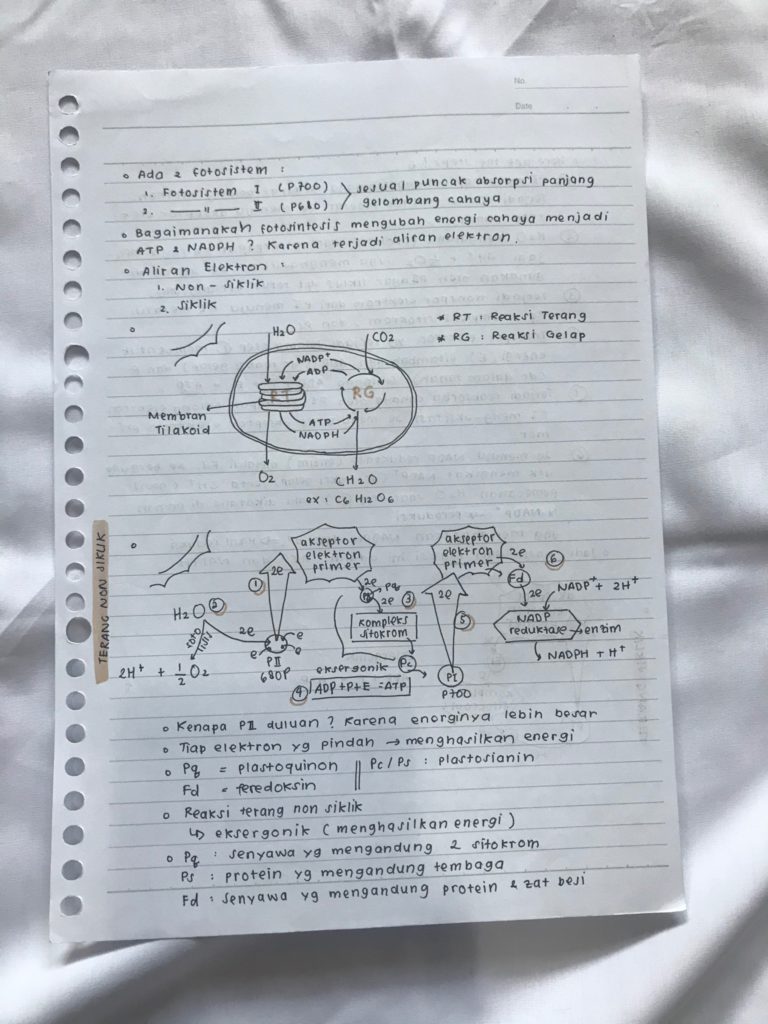 No.
Date
◦ Ada 2 fotosistem :
1. Fotosistem I (P700)
2. —— " —— II (P680)
sesuai puncak absorpsi panjang
gelombang cahaya
◦ Bagaimanakah fotosintesis mengubah energi cahaya menjadi
ATP & NADPH ? Karena terjadi aliran elektron.
◦ Aliran Elektron :
1. Non - siklik
2. siklik
* RT : Reaksi Terang
* RG : Reaksi Gelap
H2O
CO2
NADP+
ADP
RT
RG
Membran
Tilakoid
ATP
NADPH
O2
CH2O
ex : C6 H12 O6
TERANG NON SIKLIK
akseptor
elektron
primer
akseptor
elektron
primer
2e
6
Fd
1
2e
2e
Pq
2e
3
2e
2e
NADP+ + 2H+
H2O 2
foto
lisis
2e
kompleks
sitokrom
5
NADP
reduktase → enzim
2H+ + 1/2 O2
e e
e e
PII
680P
eksergonik
Pc
PI
P700
NADPH + H+
4 ADP+P+E = ATP
◦ Kenapa PII duluan ? Karena enorginya lebih besar
◦ Tiap elektron yg pindah → menghasilkan energi
◦ Pq = plastoquinon || Pc / Ps : plastosianin
Fd = feredoksin
◦ Reaksi terang non siklik
↳ eksergonik ( menghasilkan energi )
◦ Pq : senyawa yg mengandung 2 sitokrom
Ps : protein yg mengandung tembaga
Fd : senyawa yg mengandung protein & zat besi